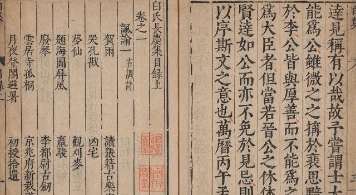 達見稱有以哉故予嘗謂士
能爲公雖微之之搆於裴思黯
於李公皆與厚善而不能爲
爲大臣者但當若晉公之休休
賢達如公而亦不免於見忌則
以斥斯文之意也萬曆丙午
白氏長慶集目錄上
卷之一
諷諭一 古調詩
賀雨 讀張籍古樂
哭孔戡 凶宅
夢仙 觀刈麥
題海圖屏風 羸駿
廢琴 李都尉古劍
雲居寺孤桐 京兆府新栽
月夜登閣避暑 初授拾遺